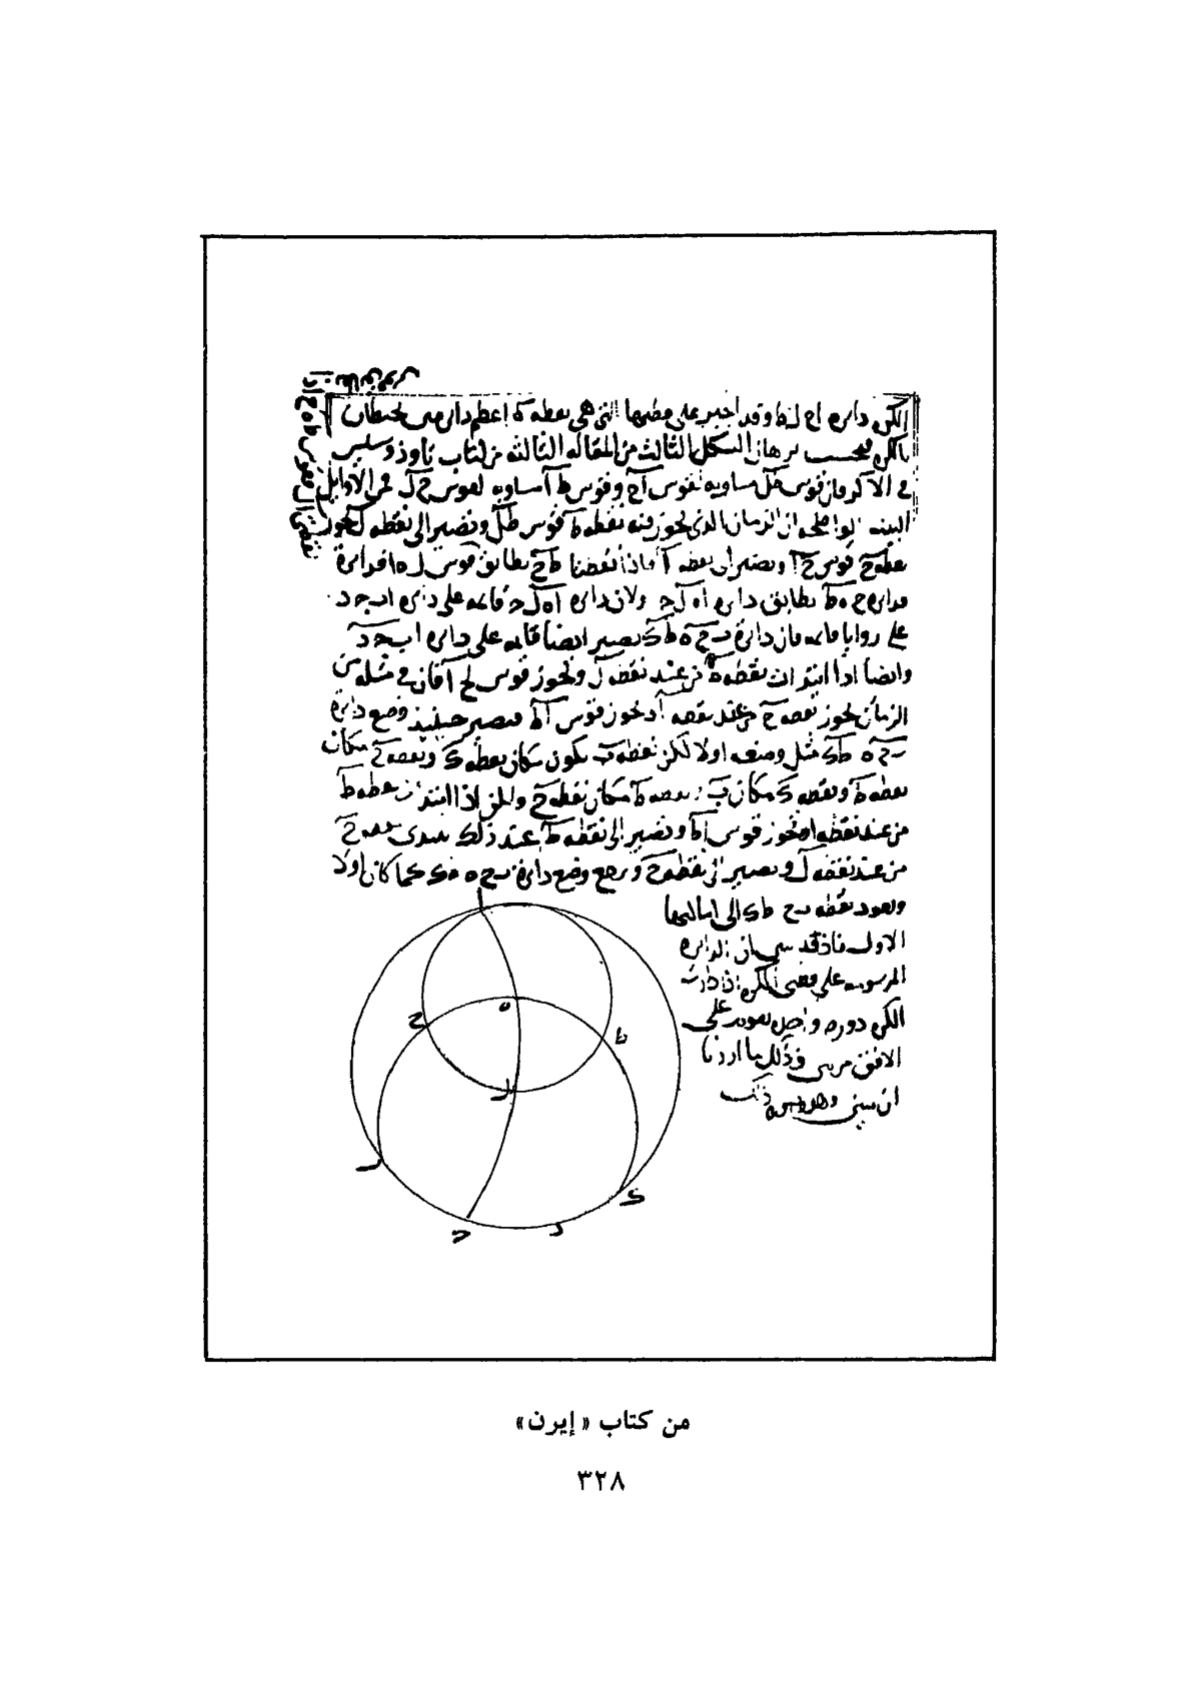 الكره دايره اح ل ط وقد اجيز على قطبها التي هي نقطه ه اعظم دايرتين تحيطان
بالكره فبحسب برهان الشكل الثالث من المقاله الثالثه من كتاب ثاوذوسيس
في الاكر فان قوس ط ل مساويه لقوس آح وقوس ط آ مساويه لقوس ح ل فمن الاوايل
البينه الواضحه ان الزمان الذي تجوز فيه نقطه ط قوس ط ل وتصير الى نقطه ل تجوز
نقطه ح قوس ح آ وتصير الى نقطه آ فاذا نقطتا ط ح تطابق قوس ل ه ا فدايرة
فدايره ح ه ط تطابق دايره ا ه ل ج ولان دايره ا ه ل ج قايمه على دايره ا ب ج د
على زوايا قايمه فان دايرة ب ح ه ط ك تصير ايضا قايمه على دايره ا ب ج د
وايضا اذا ابتدات نقطه ط من عند نقطه ل وتجوز قوس ل ح آ فان في مثله من
الزمان تجوز نقطه ح من عند نقطه آ وتجوز قوس آ ط فيصير حينيذ وضع دايرة
ب ح ه ط ك مثل وضعه اولا لكن نقطه ب يكون مكان نقطه ك ونقطه ح مكان
نقطه ط ونقطه ك مكان ب ونقطه ط مكان نقطه ح ولكن اذا ابتدات نقطه ط
من عند نقطه ا وتجوز قوس ا ط وتصير الى نقطه ط عند ذلك يبتدى نقطه ح
من عند نقطه ل وتصير الى نقطه ح ويرجع وضع دايرة ب ح ه ط ك كما كان اولا
وتعود نقطه ب ح ط ك الى اماكنها
الاول فاذ قد تبين ان الدايره
المرسومه على قطبى الكره اذا دارت
الكره دوره واحده تقوم على
الافق مرتين وذلك ما اردنا
ان نبين
ا
ه
ح
ط
ل
ب
ك
ج
د
من كتاب « إيرن »
٣٢٨